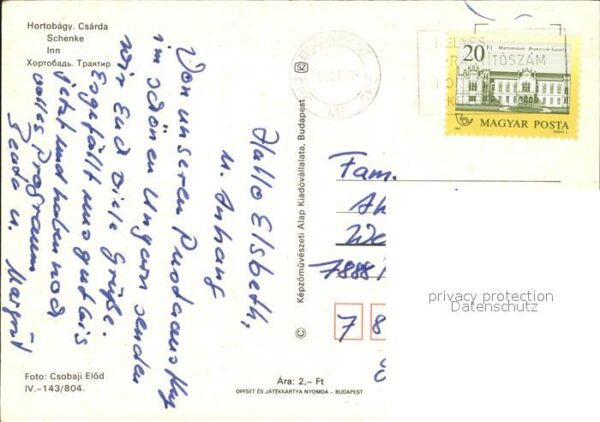 Hortobágy. Csárda
Schenke
Inn
Хортобадь. Трактир
BUDAPEST
HELYES
20 Ft
MAGYAR POSTA
Hallo Elsbeth,
u. Anhang
Von unserem
im schönen Ungarn senden
wir Euch viele Grüße.
Es gefällt uns gut bis
jetzt und haben noch
volles Programm
Beate u. Margrit
Fam.
7888
7 8
privacy protection
Datenschutz
© Képzőművészeti Alap Kiadóvállalata, Budapest
Foto: Csobaji Előd
IV.–143/804.
Ára: 2,– Ft
OFFSET ÉS JÁTÉKKÁRTYA NYOMDA – BUDAPEST